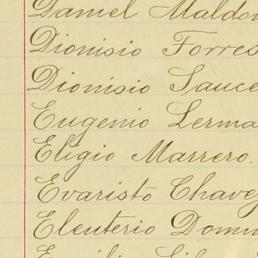 Daniel Maldon
Dionisio Torres
Dionisio Sauce
Eugenio Lerma
Eligio Marrero.
Evaristo Chavez
Eleuterio Domin